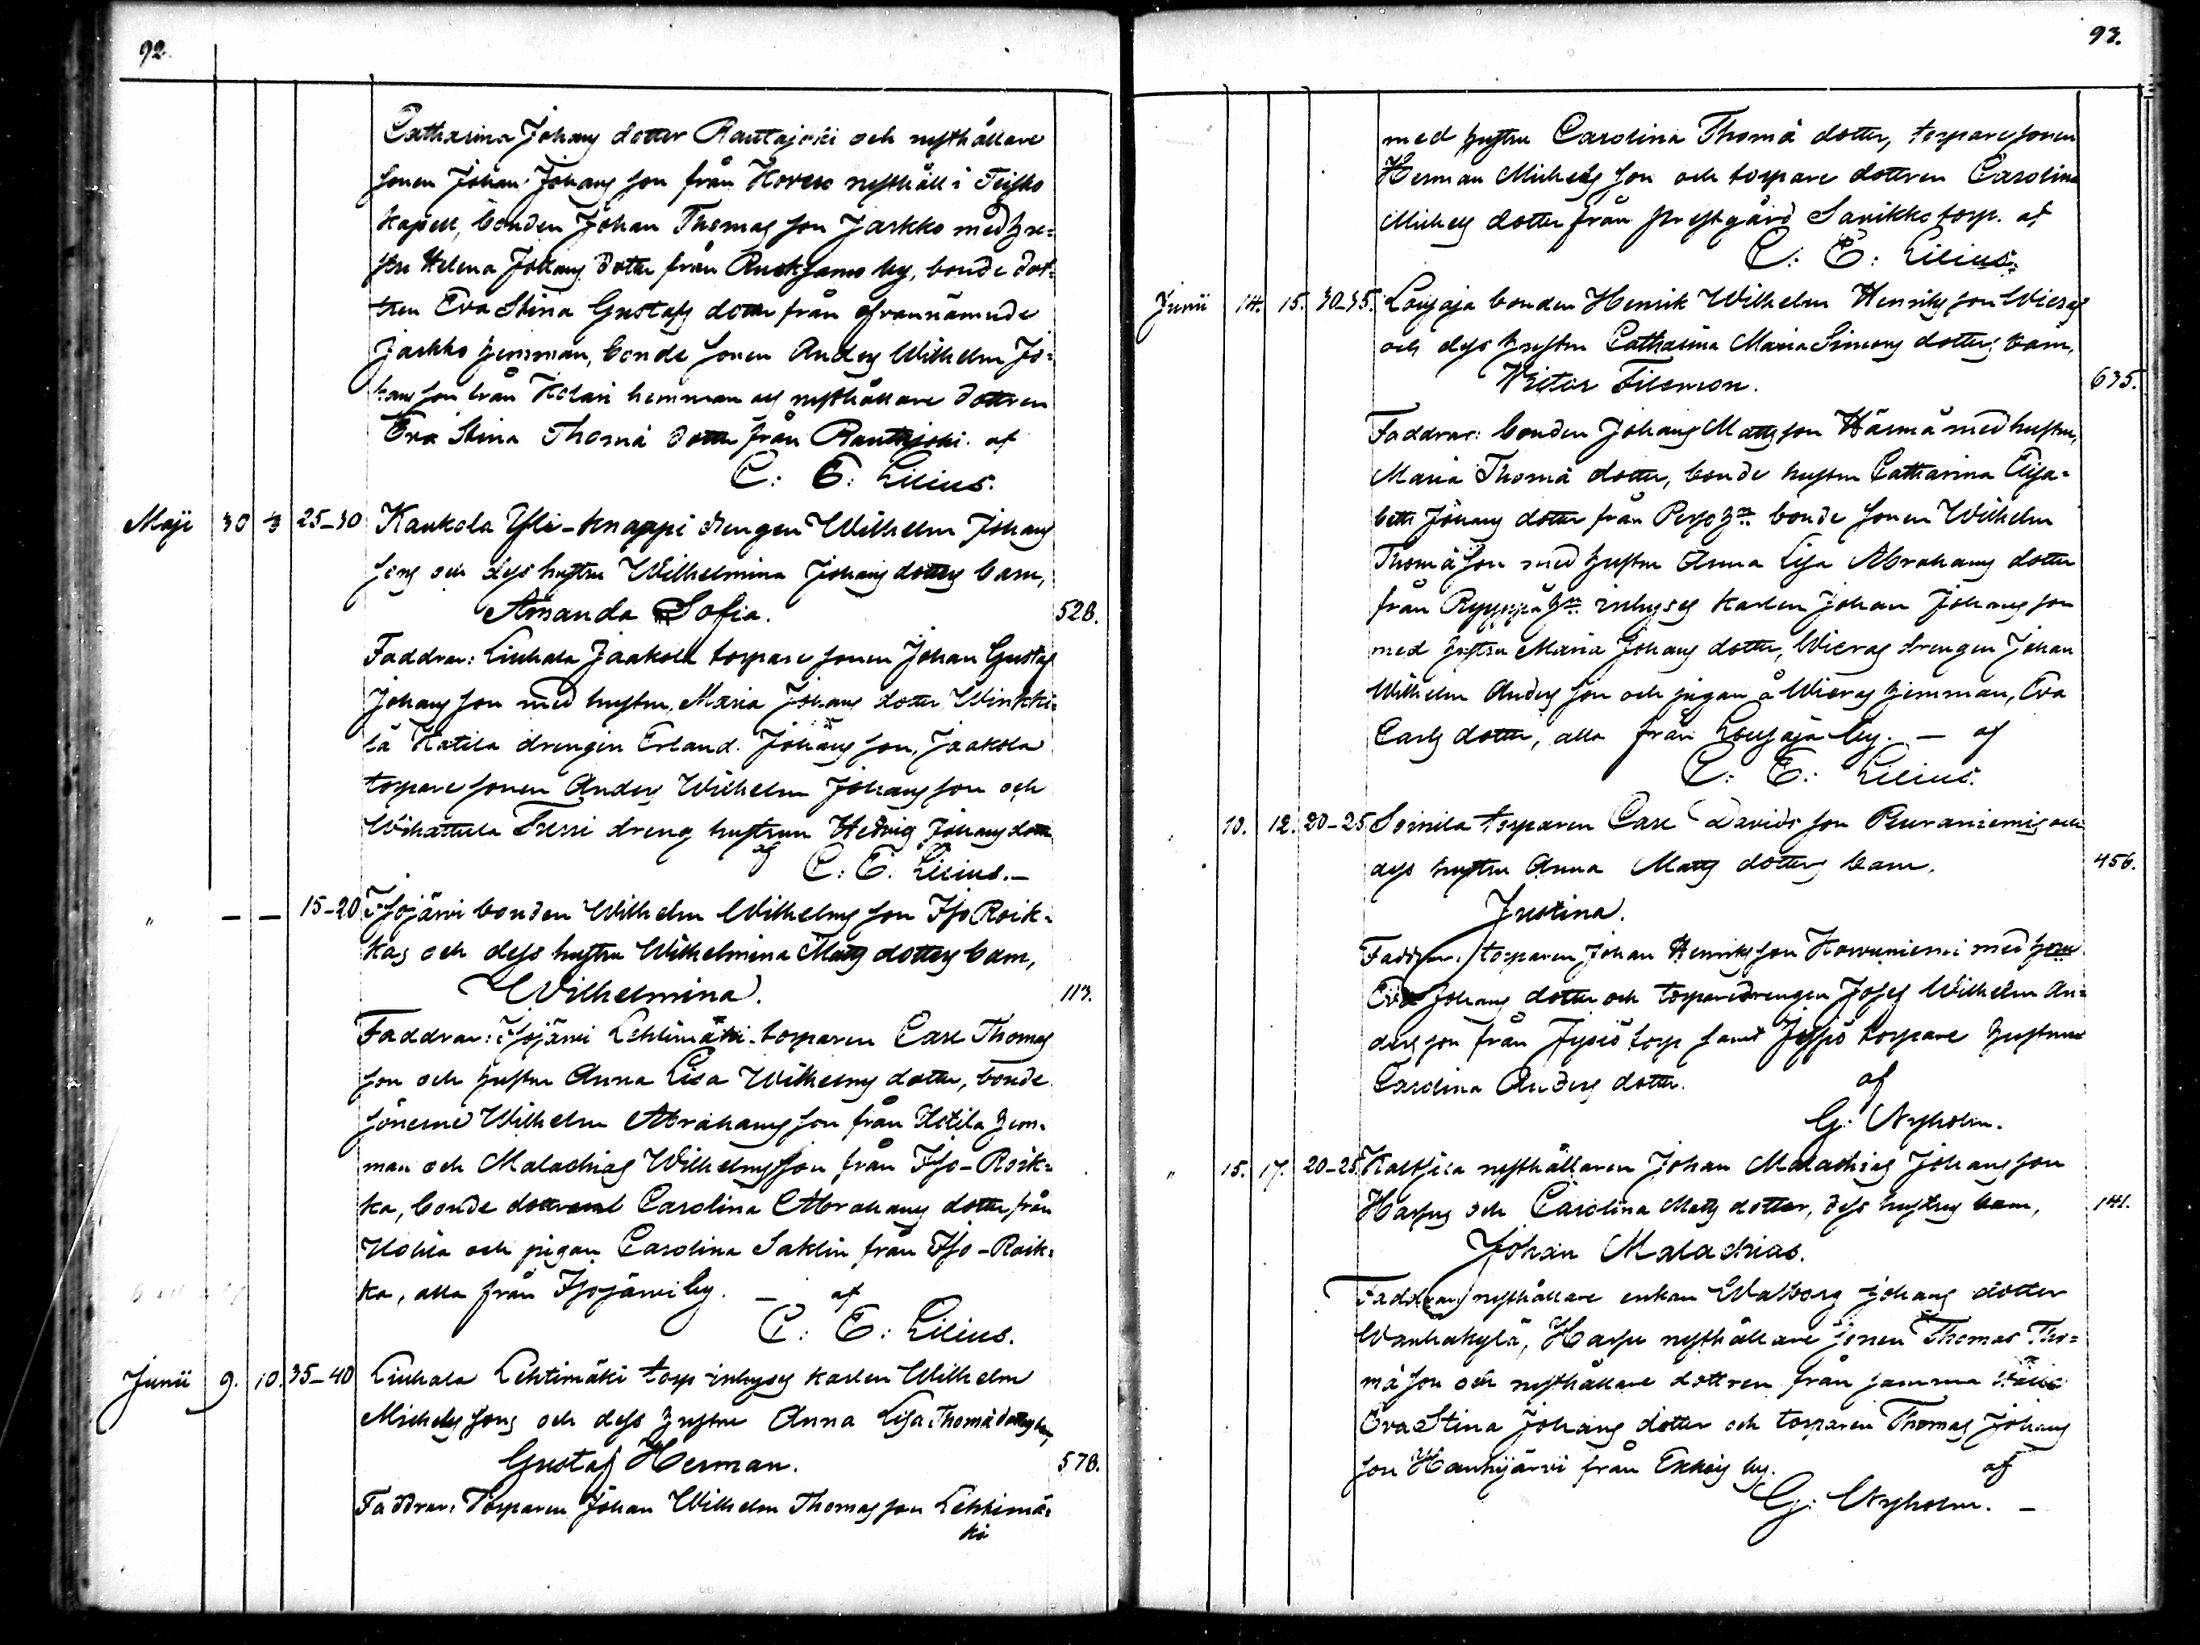 92.
Catharina Johans dotter Rautajoki och rusthållare
sonen Johan Johans son från Hovers rusthåll i Teisko
kapell, bonden Johan Thomas son Jaskko med hu=
stru Helena Johans dotter från Ruoksamo by, bonde dot=
tren Eva Stina Gustafs dotter från ofvannämnde
Jaskko hemman, bonde sonen Anders Wilhelm Jo=
hans son från Kolari hemman och rusthållare dottren
Eva Stina Thomä dotter från Rautajoki. af
C: E: Lilius.
Maji 30 3 25–30 Kaukola Yli-Knappi drengen Wilhelm Johans
sons och dess hustru Wilhelmina Johans dotters barn,
Amanda Sofia. 528.
Faddrar: Liuhala Jaakola torpare sonen Johan Gustaf
Johans son med hustru Maria Johans dotter, Winkki=
lä Katila drengen Erland Johans son, Jaakola
torpare sonen Anders Wilhelm Johans son och
Wihattula dreng hustrun Hedvig Johans dotter
af
C: E. Lilius.–
" — — 15–20 Isojärvi bonden Wilhelm Wilhelms son Iso Roik=
kas och dess hustru Wilhelmina Matts dotters barn,
Wilhelmina. 113.
Faddrar: Isojärvi Lehtimäki torparen Carl Thomas
son och hustru Anna Lisa Wilhelms dotter, bonde
sönerne Wilhelm Abrahams son från Hotila hem=
man och Malachias Wilhelms son från Iso-Roik=
ka, bonde dottren Carolina Abrahams dotter från
Hotila och pigan Carolina Saklin från Iso-Roik=
ka, alla från Isojärvi by. — af
C: E: Lilius.
Junii 9. 10. 35–40 Liuhala Lehtimäki torp inhyses karlen Wilhelm
Michels sons och dess hustru Anna Lisa Thomä dotters barn,
Gustaf Herman. 578.
Faddrar: Torparen Johan Wilhelm Thomas son Lehtimä=
ki
93.
med hustru Carolina Thomä dotter, torpare sonen
Herman Michels son och torpare dottren Carolina
Michels dotter från prestgård Sarikko torp. af
C: E: Lilius.
Junii 14. 15. 30–35. Lousaja bonden Henrik Wilhelm Henriks son Wieras
och dess hustru Catharina Maria Simons dotters barn,
Victor Filemon. 635.
Faddrar: bonden Johans Matts son Härmä med hustru,
Maria Thomä dotter, bonde hustru Catharina Elisa=
beth Johans dotter från Perho hn: bonde sonen Wilhelm
Thomä son med hustru Anna Lisa Abrahams dotter
från Ryyppä hn: inhyses karlen Johan Johans son
med hustru Maria Johans dotter, Wieras drengen Johan
Wilhelm Anders son och pigan å Wieras hemman, Eva
Carls dotter, alla från Lousaja by. — af
C: E: Lilius.
" 10. 12. 20–25 Soinila torparen Carl Davids son Peuraniemis och
dess hustru Anna Matts dotters barn. 456.
Justina.
Faddrar: torparen Johan Henriks son Koivuniemi med hru
Eva Johans dotter och torparedrengen Josef Wilhelm An=
ders son från torp samt torpare hustrun
Carolina Anders dotter. af
G: Nyholm.
" 15. 17. 20–25 Kaltsila rusthållaren Johan Malachias Johans son
Harjus och Carolina Matts dotter, dess hustrus barn, 141.
Johan Malachias.
Faddrar: rusthållare enkan Walborg Johans dotter
Wanhakylä, Harju rusthållare sonen Thomas Tho=
mä son och rusthållare dottren från samma ställe
Eva Stina Johans dotter och torparen Thomas Johans
son Hankijärvi från Exköis by. af
G: Nyholm. —